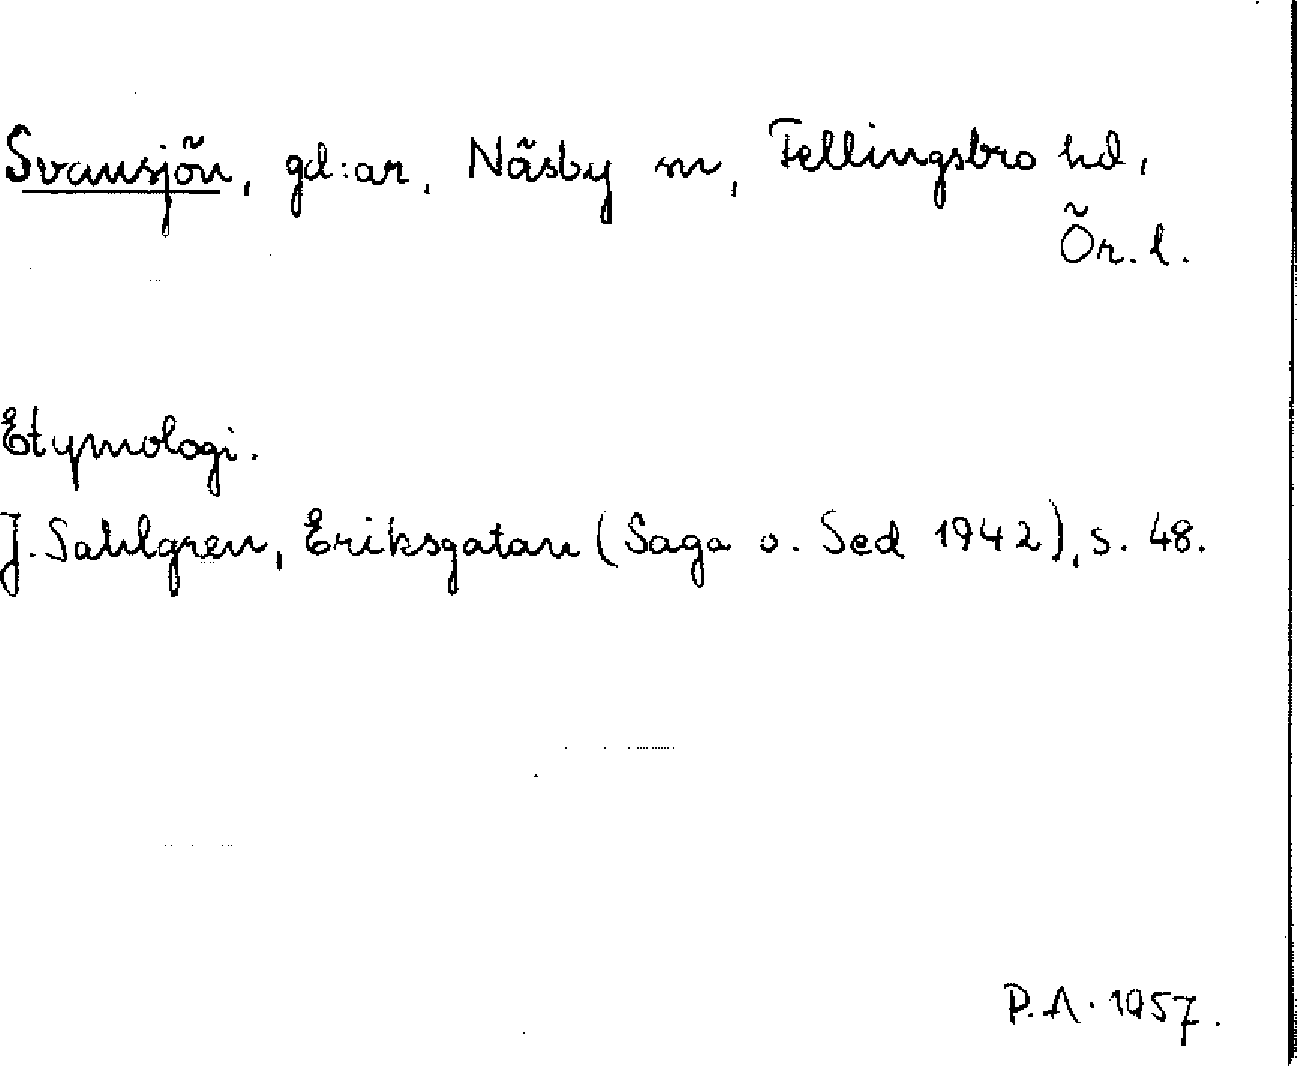 Svansjön, gd:ar, Näsby sn, Fellingsbro hd,
Ör. l.
Etymologi.
J. Sahlgren, Eriksgatan (Saga o. Sed 1942), s. 48.
P.A. 1957.